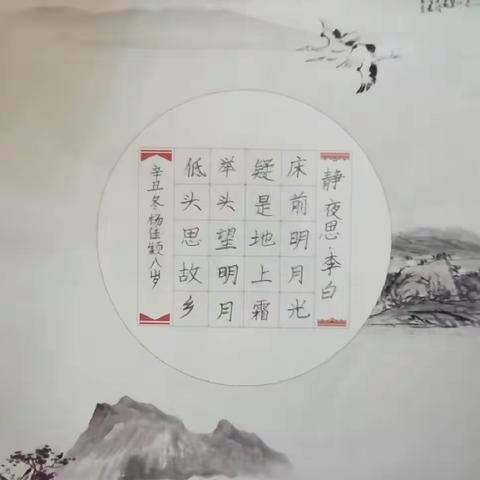 静夜思·李白
床前明月光
疑是地上霜
举头望明月
低头思故乡
辛丑冬杨佳颖八岁